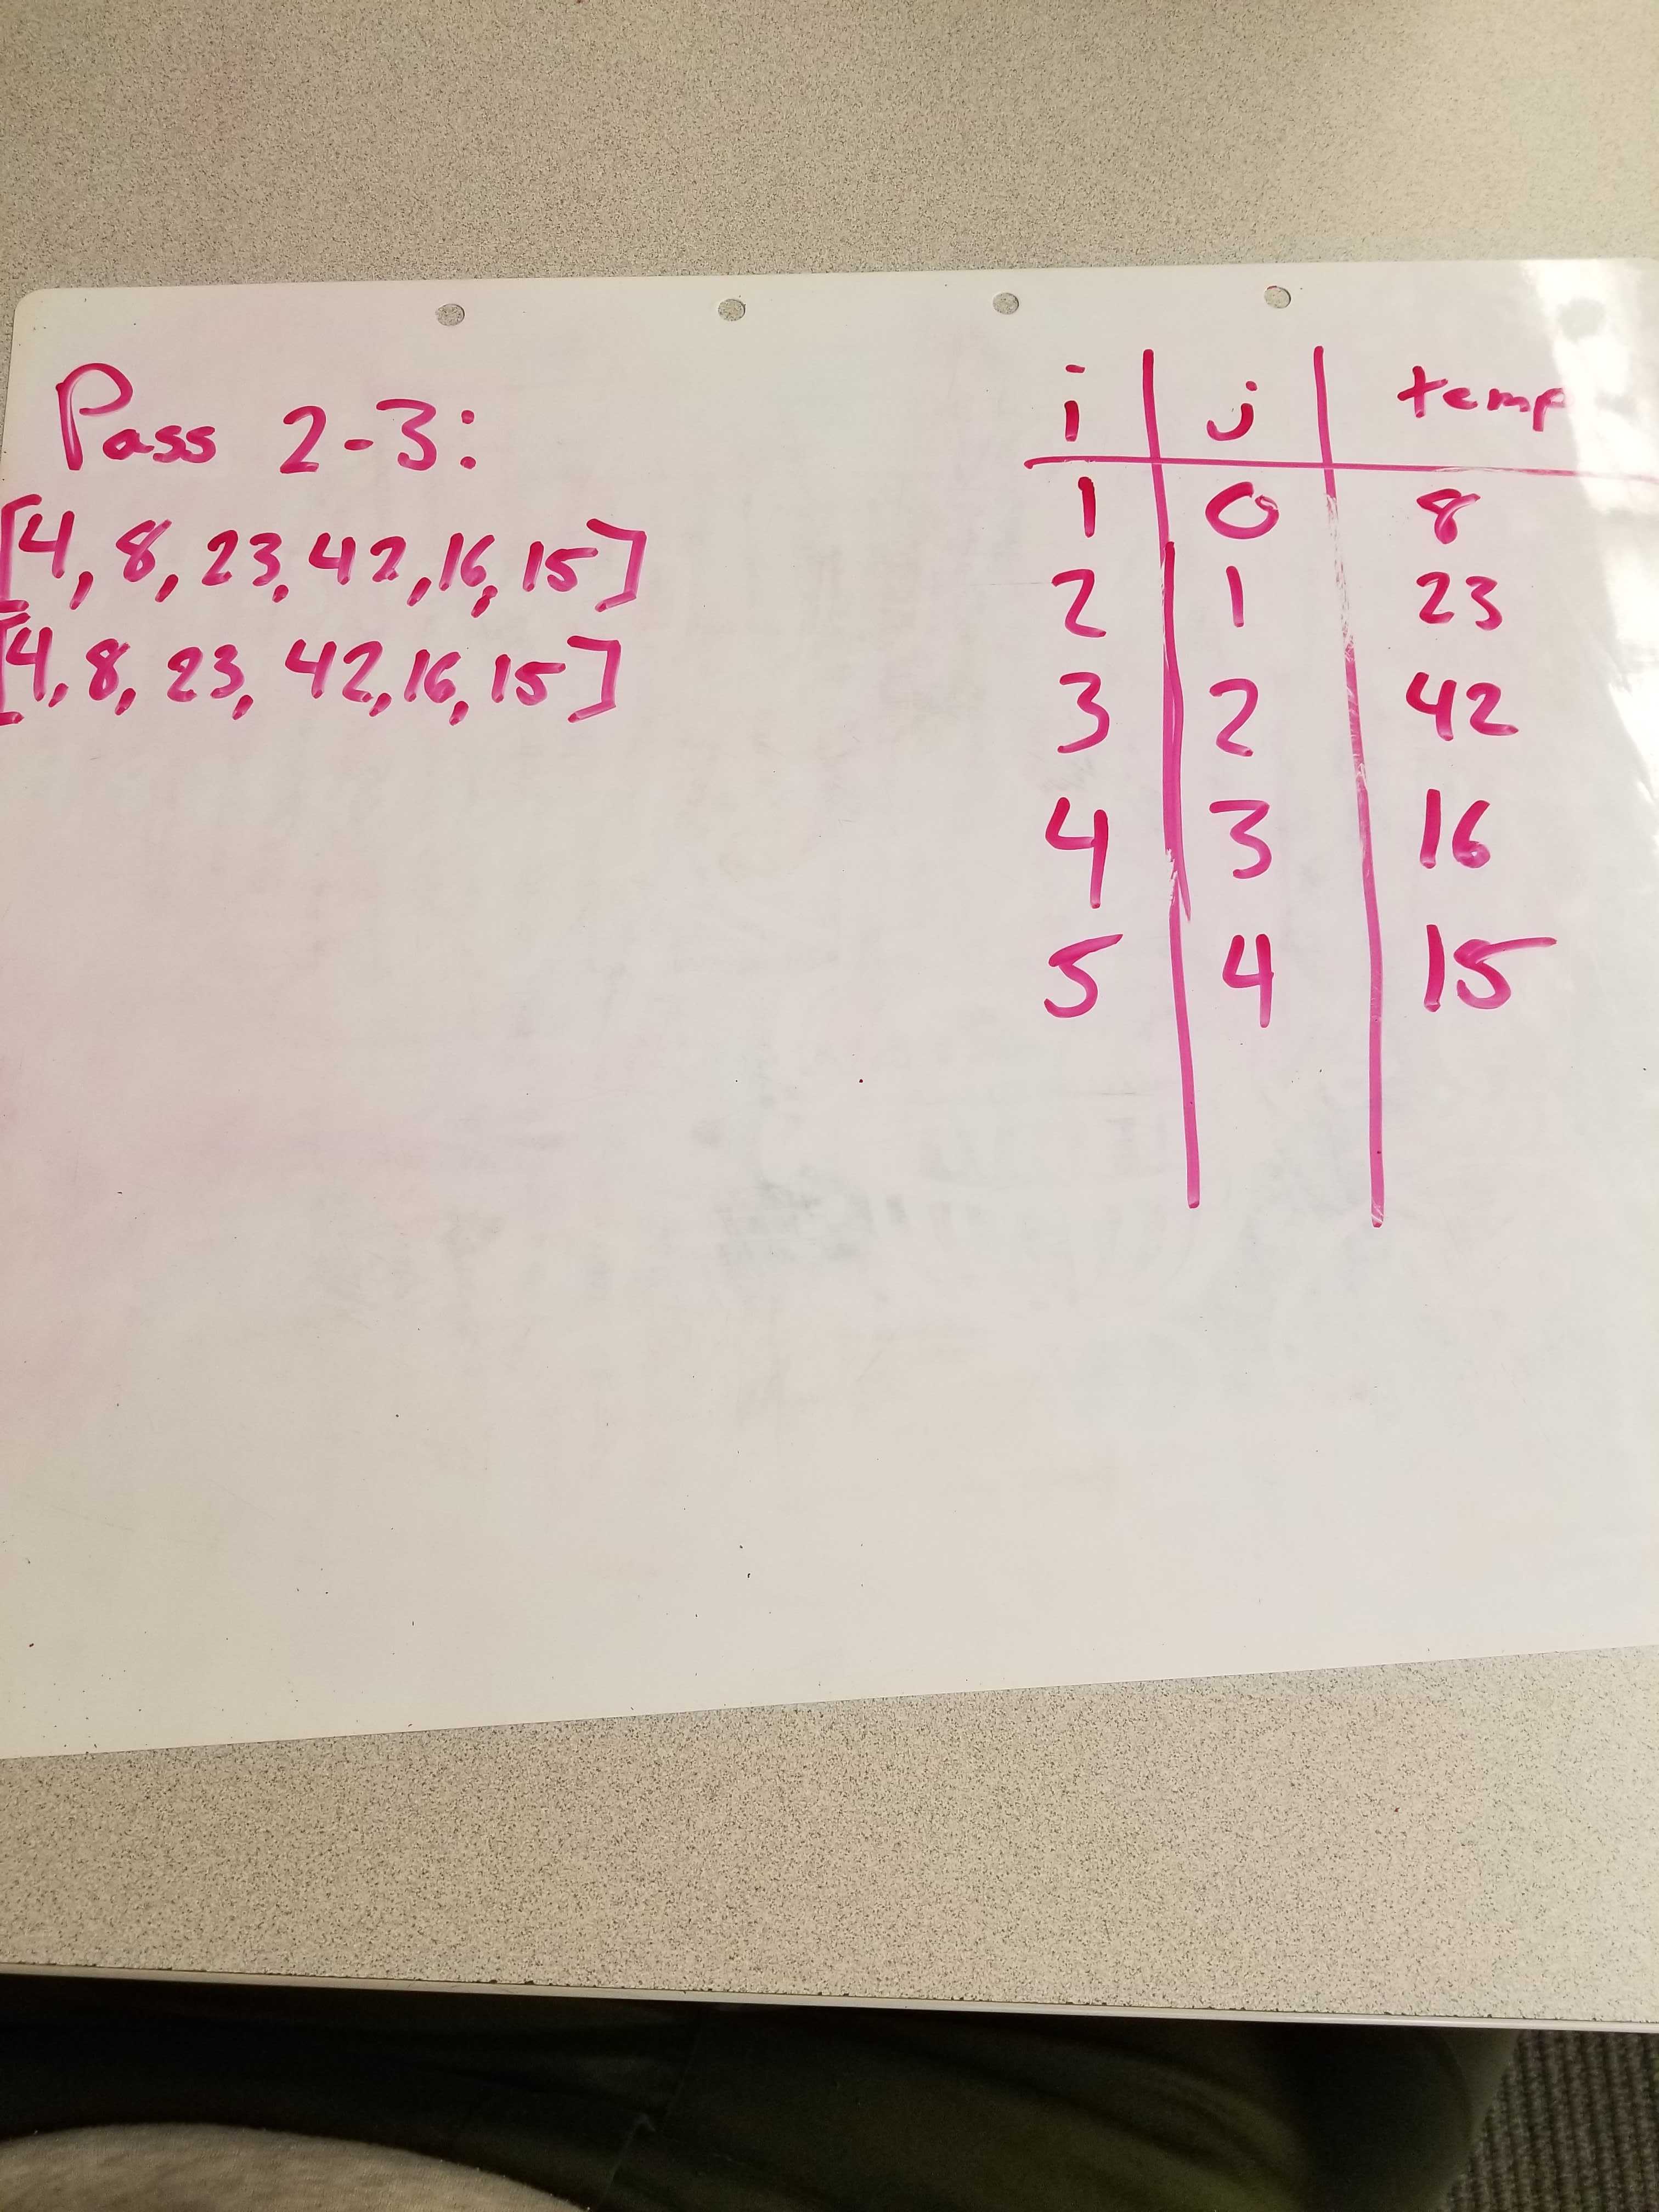 Pass 2-3:
[4, 8, 23, 42, 16, 15]
[4, 8, 23, 42, 16, 15]
i j temp
1 0 8
2 1 23
3 2 42
4 3 16
5 4 15